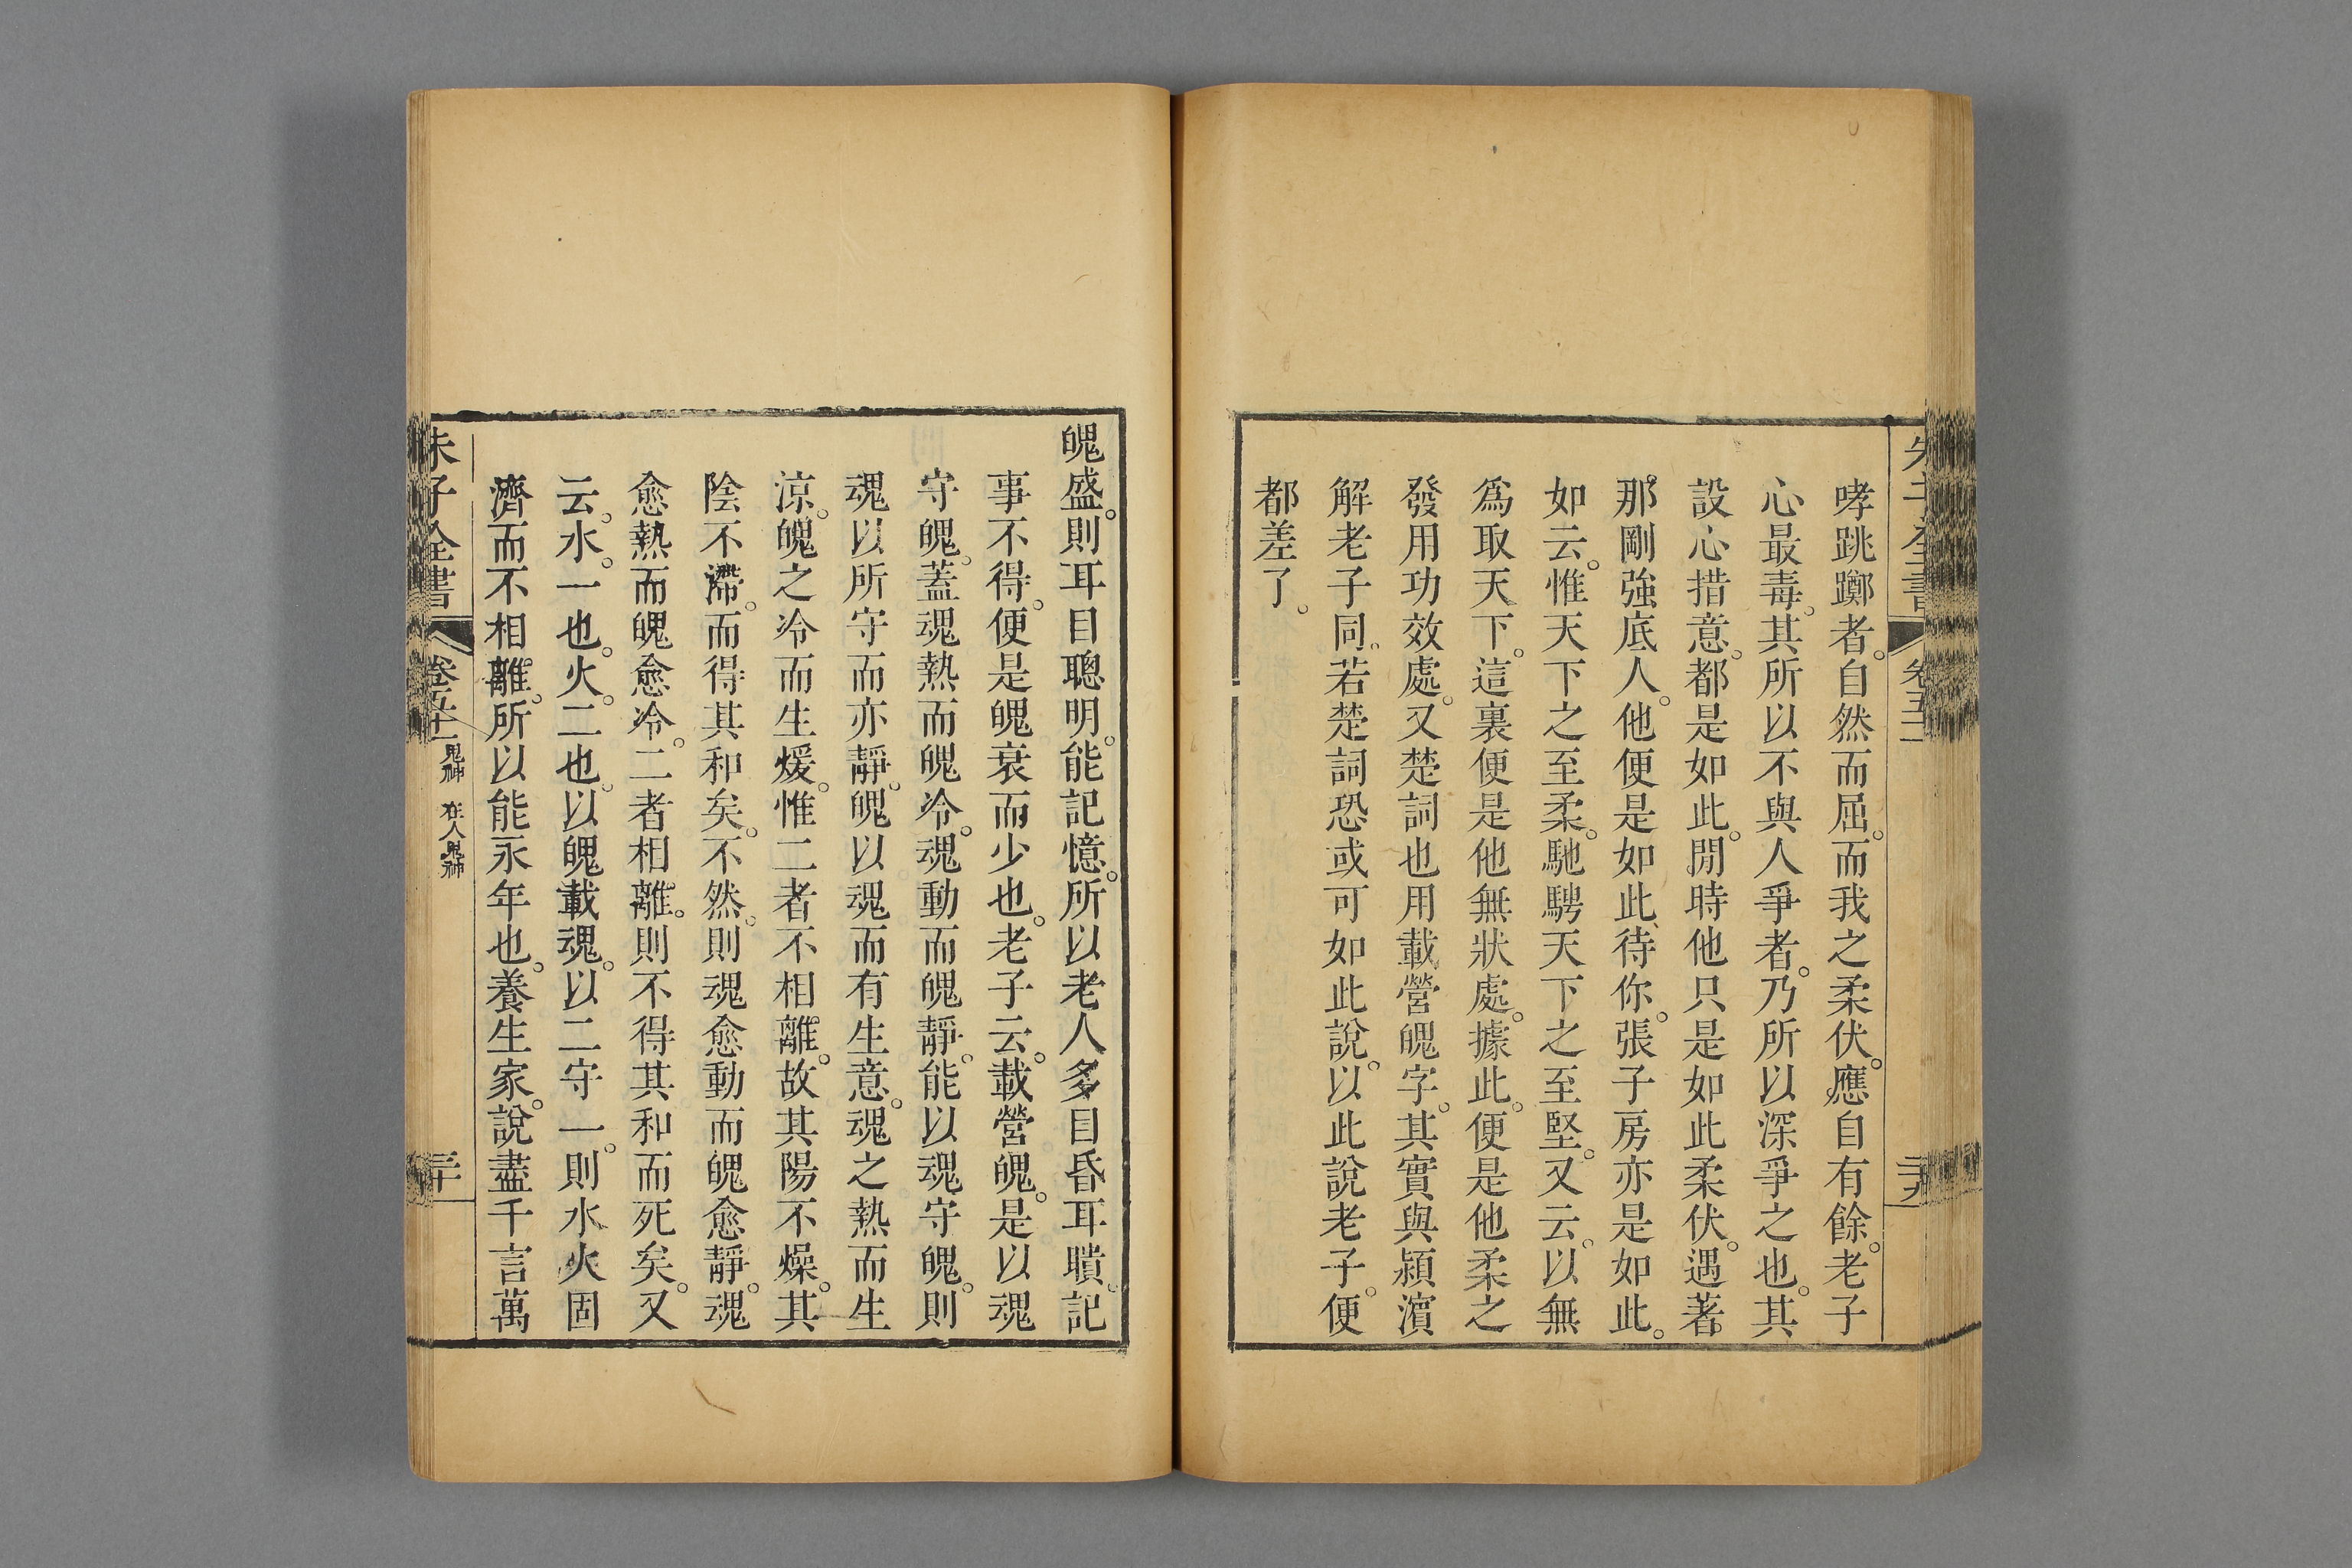 哮跳躑者。自然而屈。而我之柔伏。應自有餘。老子
心最毒。其所以不與人爭者。乃所以深爭之也。其
設心措意。都是如此。閒時他只是如此柔伏。遇著
那剛強底人。他便是如此待你。張子房亦是如此。
如云。惟天下之至柔。馳騁天下之至堅。又云。以無
爲取天下。這裏便是他無狀處。據此。便是他柔之
發用功效處。又楚詞也用載營魄字。其實與潁濱
解老子同。若楚詞恐或可如此說。以此說老子。便
都差了。
魄盛。則耳目聰明。能記憶。所以老人多目昏耳聵。記
事不得。便是魄衰而少也。老子云。載營魄。是以魂
守魄。蓋魂熱而魄冷。魂動而魄靜。能以魂守魄。則
魂以所守而亦靜。魄以魂而有生意。魂之熱而生
涼。魄之冷而生煖。惟二者不相離。故其陽不燥。其
陰不滯。而得其和矣。不然。則魂愈動而魄愈靜。魂
愈熱而魄愈冷。二者相離。則不得其和而死矣。又
云。水。一也。火。二也。以魄載魂。以二守一。則水火固
濟而不相離。所以能永年也。養生家。說盡千言萬
朱子全書
鬼神 在人鬼神
三十